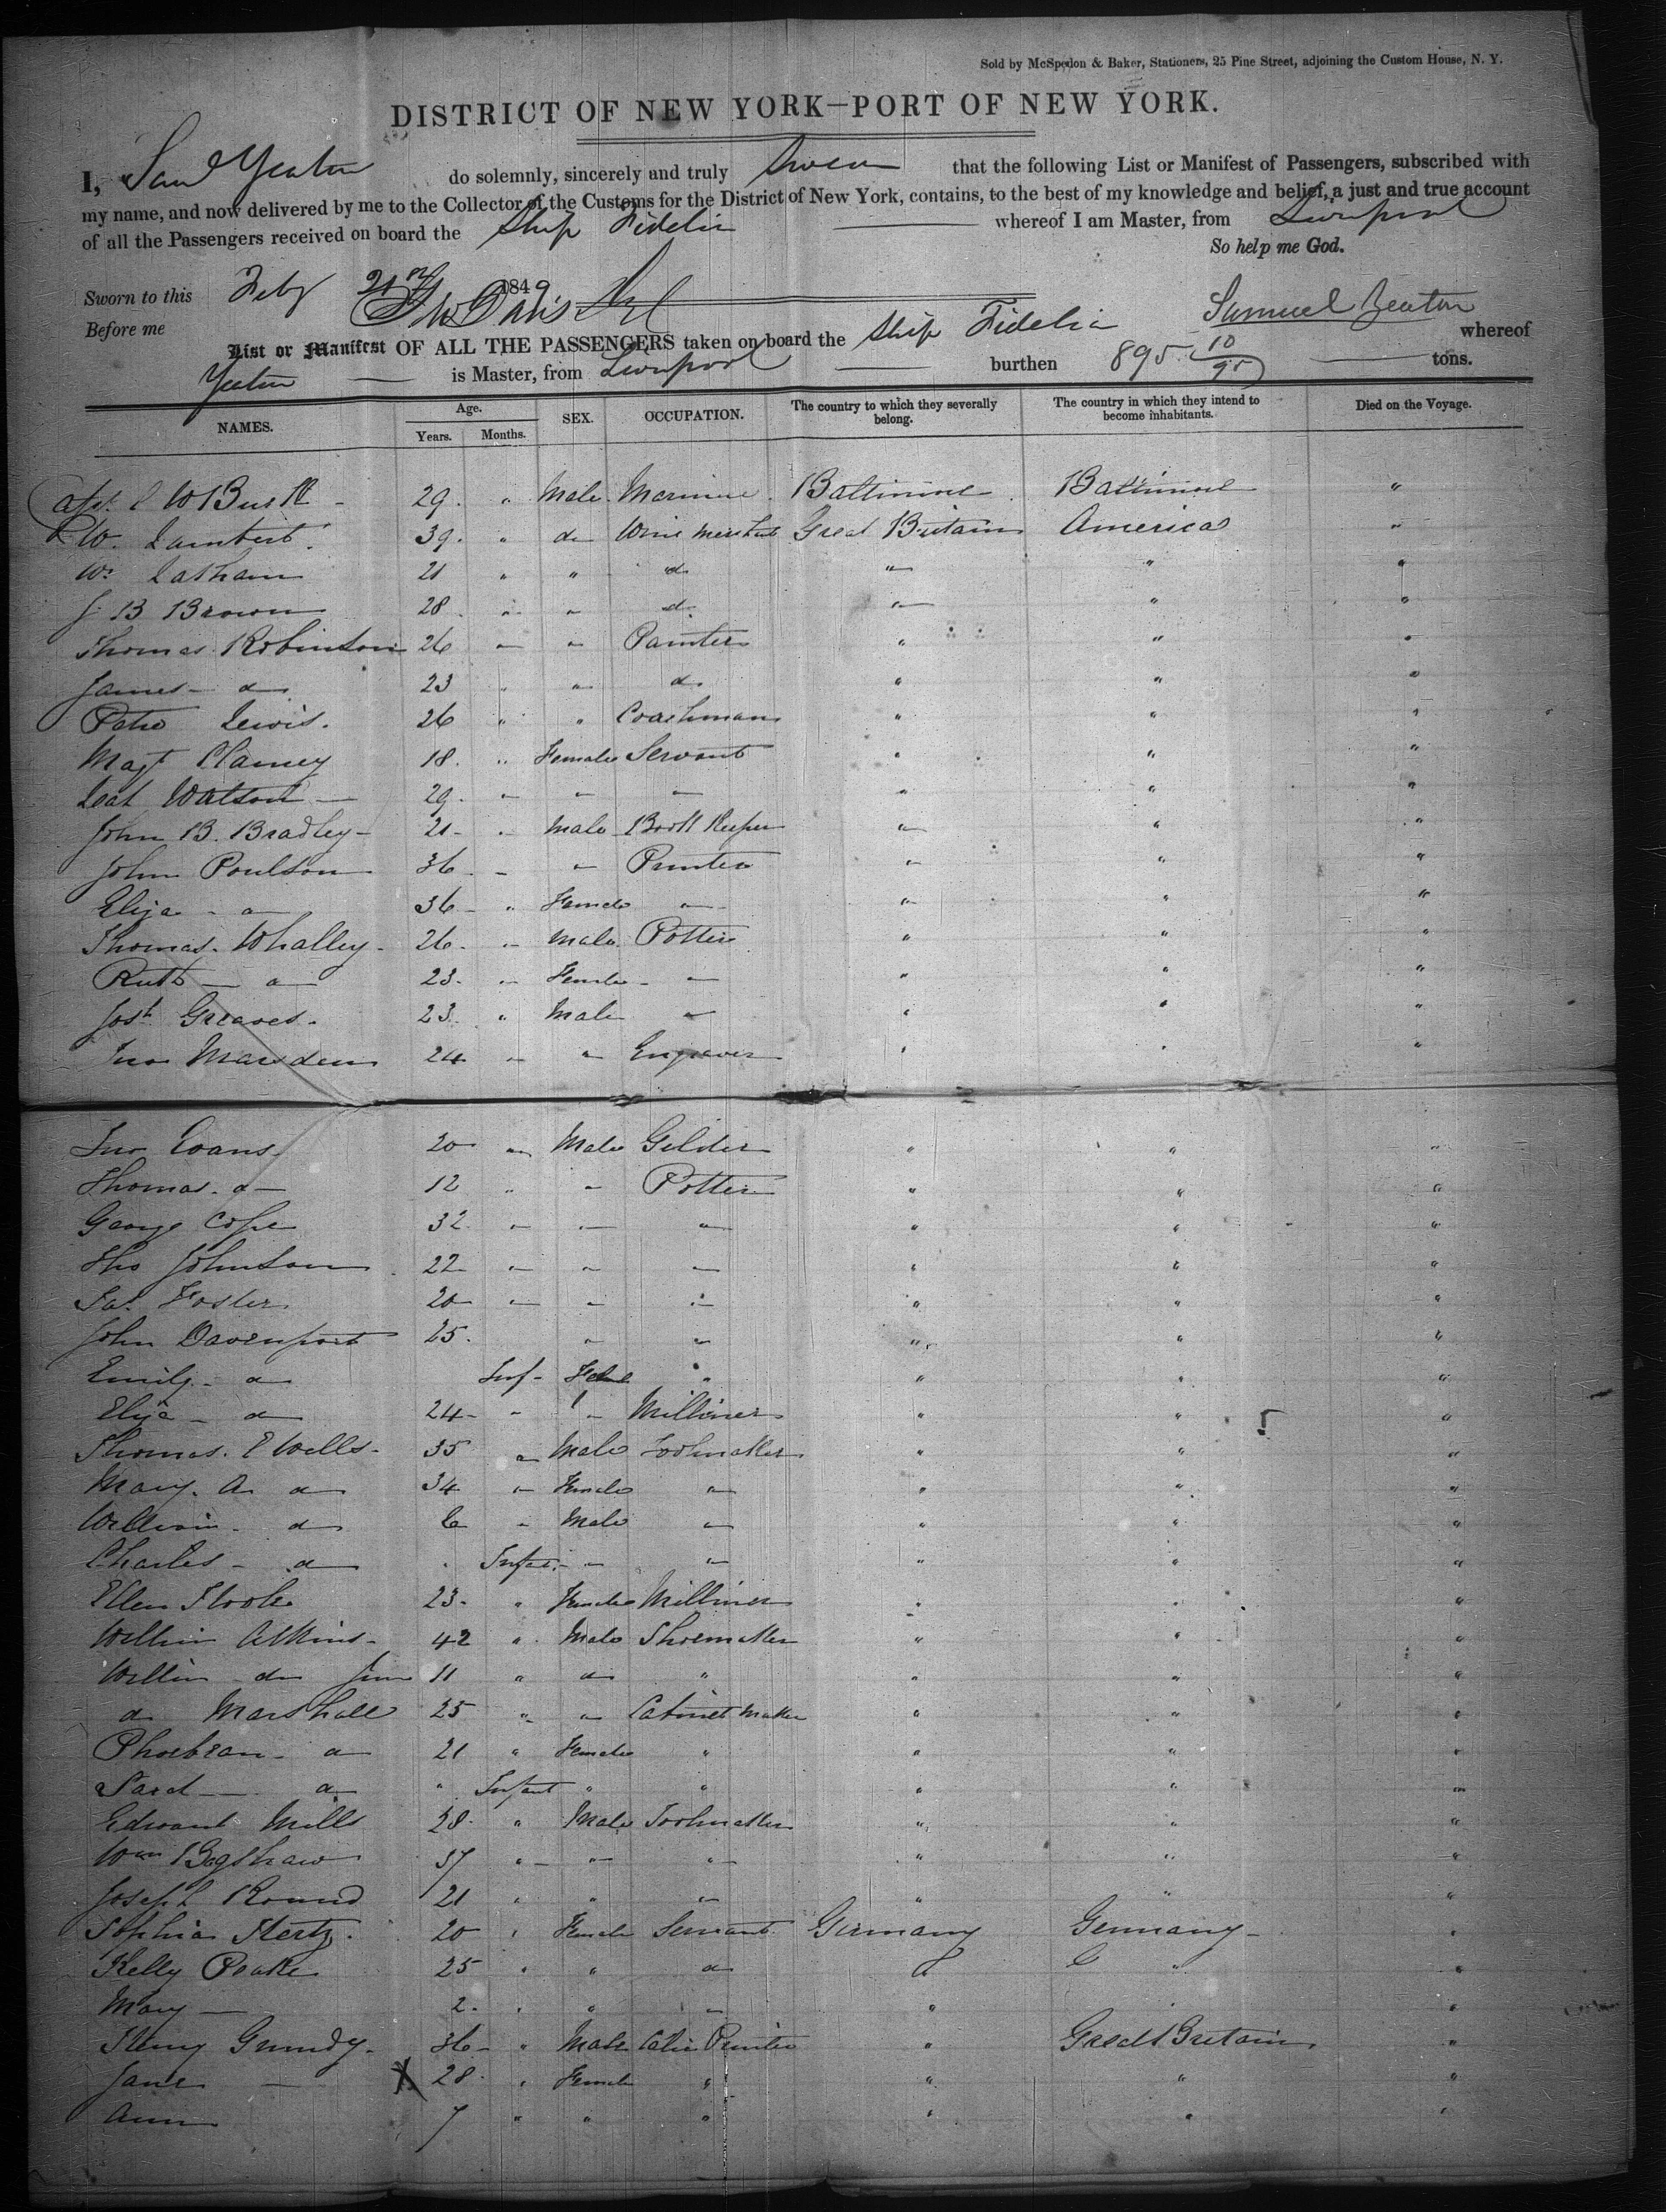 Sold by McSpedon & Baker, Stationers, 25 Pine Street, adjoining the Custom House, N. Y.
DISTRICT OF NEW YORK—PORT OF NEW YORK.
I, Saml Yeaton do solemnly, sincerely and truly Swear that the following List or Manifest of Passengers, subscribed with
my name, and now delivered by me to the Collector of the Customs for the District of New York, contains, to the best of my knowledge and belief, a just and true account
of all the Passengers received on board the Ship Fidelia whereof I am Master, from Liverpool
So help me God.
Sworn to this Feby 21 1849
Before me Samuel Yeaton
List or Manifest OF ALL THE PASSENGERS taken on board the Ship Fidelia whereof
Yeaton is Master, from Liverpool burthen 895 10/95 tons.
NAMES. Age. Years. Months. SEX. OCCUPATION. The country to which they severally belong. The country in which they intend to become inhabitants. Died on the Voyage.
Capt W Busk 29. " Male Mariner Baltimore Baltimore "
W. Lambert 39. " do Wine Merchant Great Britain America "
Wm Latham 21 " " do " " "
J B Brown 28 " " do " " "
Thomas Robinson 26 " " Painter " " "
James do 23 " " do " " "
Patk Lewis. 26 " " Coachman " " "
Magt Clancy 18. " Female Servant " " "
Watson 29. " " " " " "
John B. Bradley 21 " Male Book Keeper " " "
John Poulson 36 " " Printer " " "
Eliza do 36 " Female " " " "
Thomas Whalley 26 " Male Potter " " "
Ruth do 23. " Female " " " "
Josh Greaves. 23. " Male " " " "
Jno Marsden 24 " " Engraver " " "
Jno Evans 20 " Male Gilder " " "
Thomas do 12 " " Potter " " "
George Cope 32 " " " " " "
Tho Johnson 22 " " " " " "
Jas. Foster 20 " " " " " "
John Davenport 25. " " " " "
Emily do Inf Female " " " "
Eliza do 24 " " Milliner " " "
Thomas. E Wells 35 " Male Toolmaker " " "
Mary. A do 34 " Female " " " "
William do 6 " Male " " " "
Charles do " Infant " " " " "
Ellen 23. " Female Milliner " " "
William Atkins 42 " Male Shoemaker " " "
William do Junr 11 " do " " " "
do Marshall 25 " " Cabinet Maker " " "
do 21 " Female " " " "
Sarah do " Infant " " " " "
Edward Mills 28. " Male Toolmaker " " "
Wm Bagshaw 37 " " " " " "
Joseph Round 21 " " " " " "
Sophia Hertz. 20 " Female Servant Germany Germany "
Kelly Peake 25 " " do " " "
Mary 2. " " " " "
Henry Grundy 36 " Male Calico Printer " Great Britain "
Jane X 28. " Female " " " "
Ann 7 " " " " " "